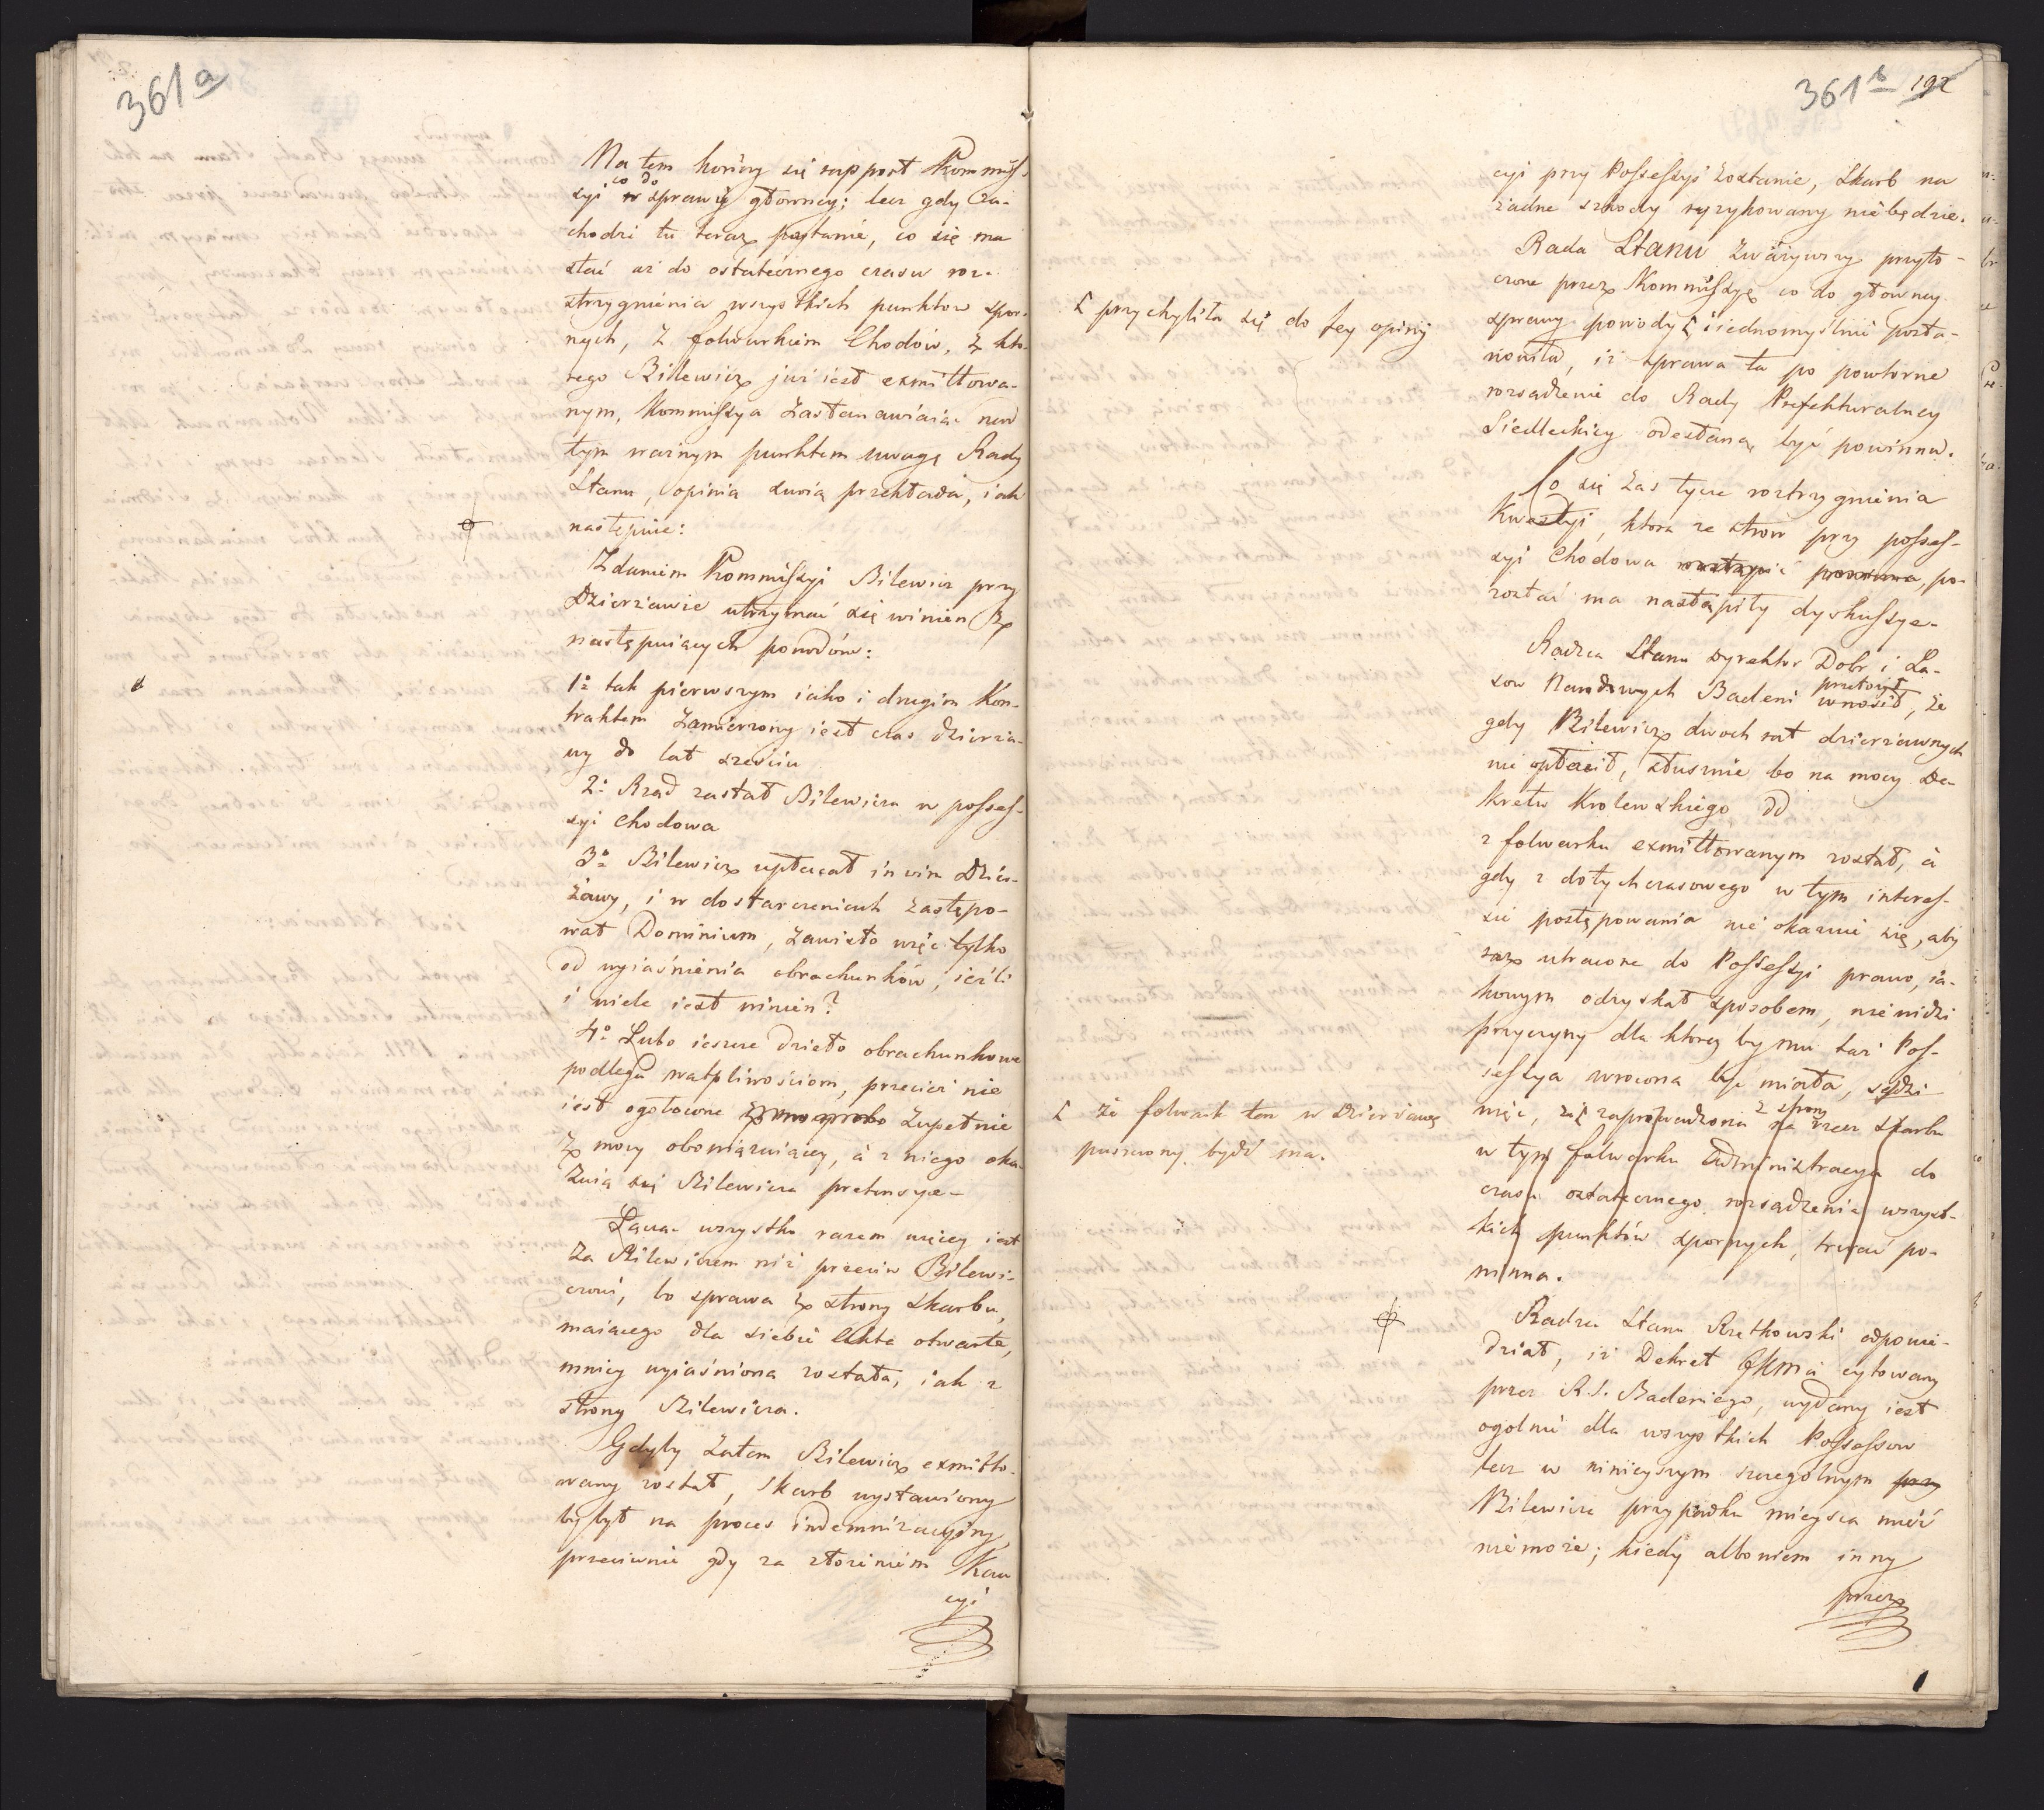 361a
Na tem kończy się rapport Kommis-
syi co do w sprawy głowney; lecz gdy za-
chodzi tu teraz pytanie, co się ma
stać aż do ostatecznego czasu roz-
strzygnienia wszystkich punktow spor-
nych, z folwarkiem Chodów, z któ-
rego Bilewicz już iest exmittowa-
nym, Kommissya zastanawiaiąc nad
tym ważnym punktem uwagę Rady
Stanu, opinią swoią przekłada, iak
następuie:
Zdaniem Kommissyi Bilewicz przy
Dzierżawie utrzymać się winien z
następuiących powodów:
1o tak pierwszym iako i drugim Kon-
traktem zamierzony iest czas dzierża-
wy do lat sześciu
2o Rząd zastał Bilewicza w posses-
syi Chodowa
3o Bilewicz upłacał in vim Dzier-
żawy, i w dostarczeniach zastępo-
wał Dominium, zawisło więc tylko
od wyiaśnienia obrachunków, ieśli
i wiele iest winien?
4o Lubo ieszcze dzieło obrachunkowe
podlega wątpliwościom, przecież nie
iest ogołocone zupełnie
z mocy obowiązuiącey, a z niego oka-
zuią się Bilewicza pretensye –
Łącząc wszystko razem więcey iest
za Bilewiczem niż przeciw Bilewi-
czowi, bo sprawa ze strony skarbu,
maiącego dla siebie Akta otwarte,
mniey wyiaśniona została, iak z
strony Bilewicza.
Gdyby zatem Bilewicz exmitto-
wany został, Skarb wystawiony
byłby na proces indemnizacyiny
przeciwnie gdy za złożeniem Kau
cyi
361b 192
cyi przy Possessyi zostanie, Skarb na
żadne szkody ryzykowany niebędzie.
Rada Stanu zważywszy przyto-
czone przez Kommissyę co do głowney
sprawy powody [ i iednomyślnie posta-
nowiła, iż sprawa ta po powtorne
rozsądzenie do Rady Prefekturalney
Siedleckiey odesłaną być powinna.
[ przychyliła się do tey opinij
Co się zaś tycze roztrzygnienia
Kwestyi, ktora ze stron przy posses-
syi Chodowa powinna, po-
zostać ma nastąpiły dyskussye –
Radca Stanu Dyrektor Dobr i La-
sow Narodowych Badeni wnosił, że
przełożył
gdy Bilewicz dwoch rat dzierżawnych
nie opłacił, słusznie bo na mocy De-
kretu Krolewskiego dd
z folwarku exmittowanym został, a
gdy z dotychczasowego w tym interes-
sie postępowania nie okazuie się, aby
raz utracone do Possessyi prawo, ia-
kowym odzyskał sposobem, nie widzi
przyczyny dla ktorey by mu taż Pos-
sessya wrocona być miała, sądzi
więc, iż zaprowadzona na rzecz Skarbu
z strony
w tym folwarku Administracya do
czasu ostatecznego rozsądzenia wszyst-
kich punktów spornych, trwać po-
winna.
[ że folwark ten w dzierżawę
puszczony bydź ma.
Radca Stanu Rzętkowski odpowie-
dział, iż Dekret JKMci cytowany
przez R.S. Badeniego, wydany iest
ogolnie dla wszystkich Possessorow
lecz w ninieyszym szczegolnym przy
Bilewicza przypadku mieysca mieć
niemoże; kiedy albowiem inny
przez